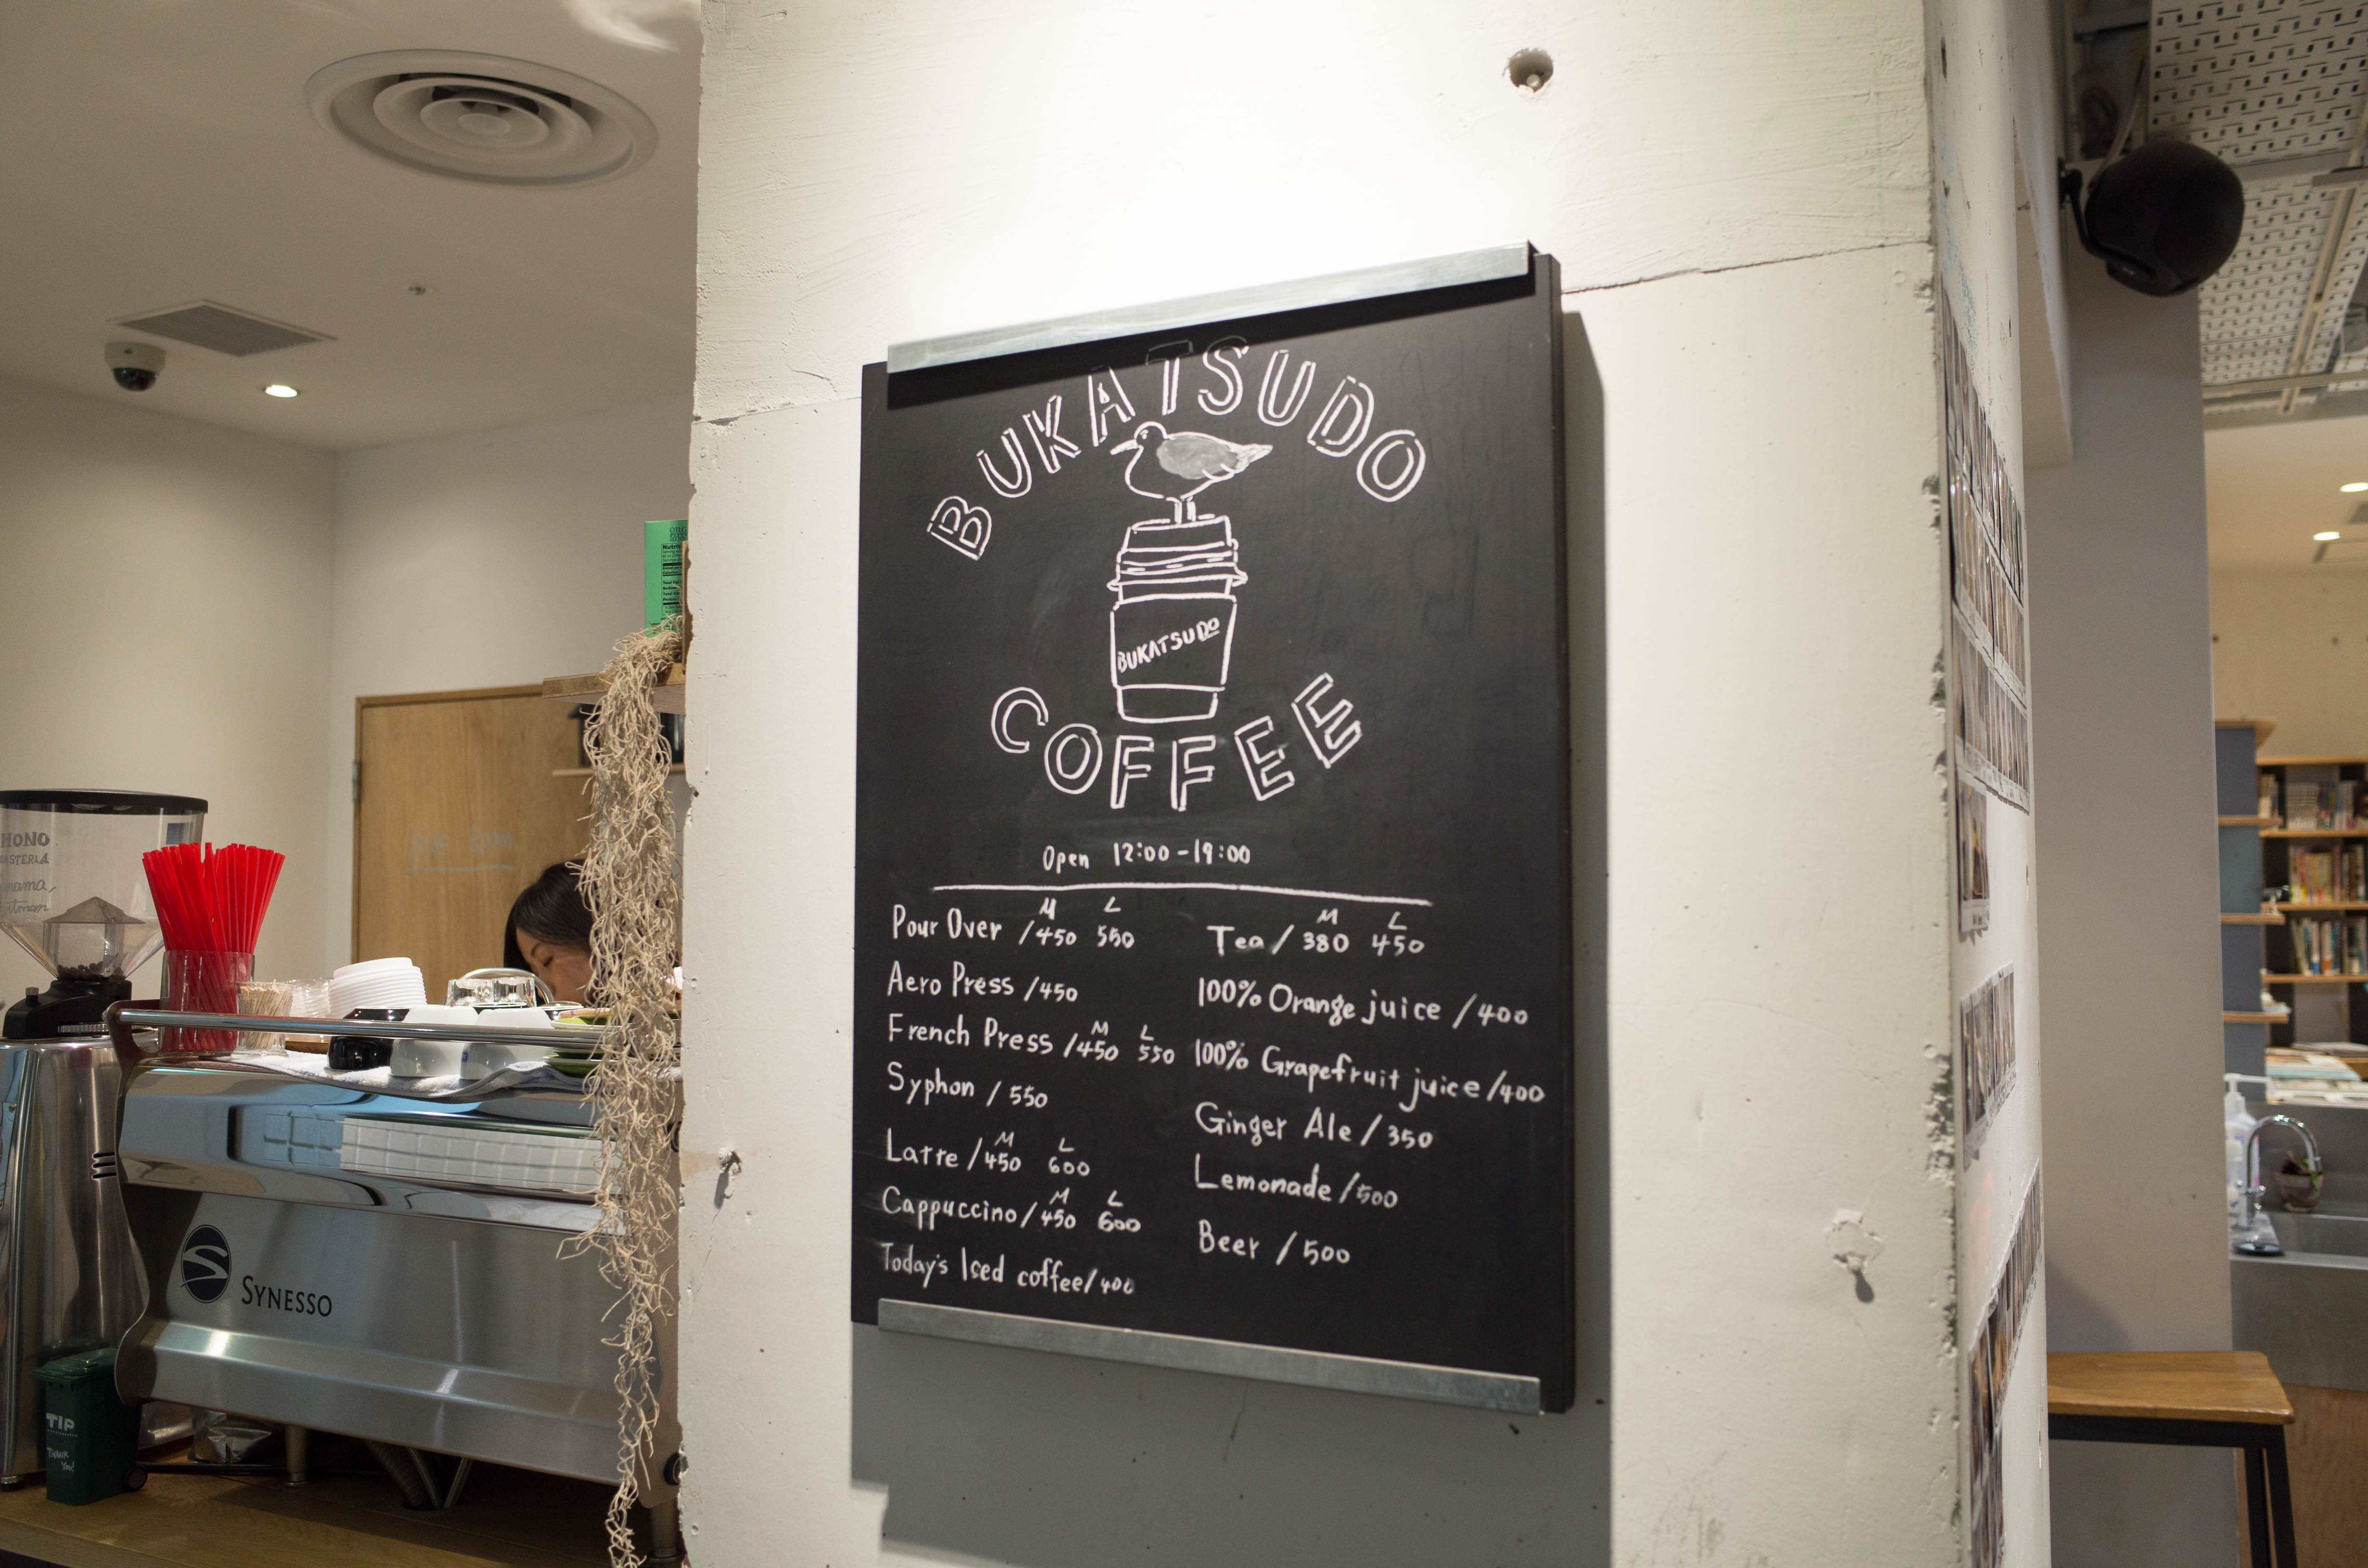 BUKATSUDO
BUKATSUDO
COFFEE
Open 12:00-19:00
M L
Pour Over /450 550
Aero Press /450
M L
French Press /450 550
Syphon / 550
M L
Latte /450 600
M L
Cappuccino/450 600
Today's Iced coffee/400
M L
Tea / 380 450
100% Orange juice /400
100% Grapefruit juice /400
Ginger Ale / 350
Lemonade /500
Beer / 500
SYNESSO
TIP
THANK
YOU!
HONO